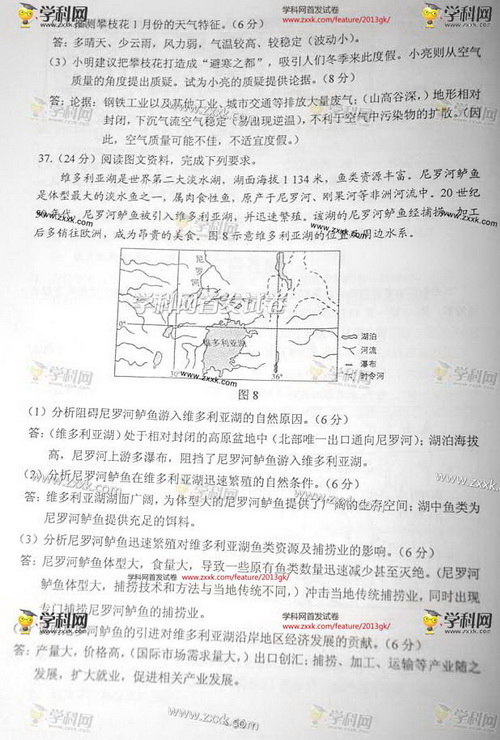 学科网 学科网首发试卷 学科网
www.zxxk.com/feature/2013gk/
测攀枝花1月份的天气特征。(6分)
答：多晴天、少云雨，风力弱，气温较高、较稳定(波动小)。
(3) 小明建议把攀枝花打造成“避寒之都”，吸引人们冬季来此度假。小亮则从空气
质量的角度提出质疑。试为小亮的质疑提供论据。(8分)
答：论据：钢铁工业以及其他工业、城市交通等排放大量废气；(山高谷深，)地形相对
封闭，下沉气流空气稳定(易出现逆温)，不利于空气中污染物的扩散。(因
此，空气质量可能不佳，不适宜度假。)
37.(24分)阅读图文资料，完成下列要求。
维多利亚湖是世界第二大淡水湖，湖面海拔1 134米，鱼类资源丰富。尼罗河鲈鱼
是体型最大的淡水鱼之一，属肉食性鱼，原产于尼罗河、刚果河等非洲河流中。20世纪
50年代，尼罗河鲈鱼被引入维多利亚湖，并迅速繁殖。该湖的尼罗河鲈鱼经捕捞、加工
后多销往欧洲，成为昂贵的美食。图8示意维多利亚湖的位置及周边水系。
www.zxxk.com
尼罗河
学科网首发试卷
0°
维多利亚湖
湖泊
河流
瀑布
时令河
30° 36°
www.zxxk.com
图8
学科网
(1) 分析阻碍尼罗河鲈鱼游入维多利亚湖的自然原因。(6分)
答：(维多利亚湖)处于相对封闭的高原盆地中(北部唯一出口通向尼罗河)；湖泊海拔
高，尼罗河上游多瀑布，阻挡了尼罗河鲈鱼游入维多利亚湖。
(2) 分析尼罗河鲈鱼在维多利亚湖迅速繁殖的自然条件。(6分)
答：维多利亚湖湖面广阔，为体型大的尼罗河鲈鱼提供了广阔的生存空间；湖中鱼类为
尼罗河鲈鱼提供充足的饵料。
(3) 分析尼罗河鲈鱼迅速繁殖对维多利亚湖鱼类资源及捕捞业的影响。(6分)
答：尼罗河鲈鱼体型大，食量大，导致一些原有鱼类数量迅速减少甚至灭绝。(尼罗河
鲈鱼体型大，捕捞技术和方法与当地传统不同，)冲击当地传统捕捞业，同时出现
专门捕捞尼罗河鲈鱼的捕捞业。
学科网 学科网首发试卷 学科网
www.zxxk.com/feature/2013gk/
河鲈鱼的引进对维多利亚湖沿岸地区经济发展的贡献。(6分)
答：产量大，价格高，(国际市场需求量大，)出口创汇；捕捞、加工、运输等产业随之
发展，扩大就业，促进相关产业发展。
学科网 www.zxxk.com 学科网